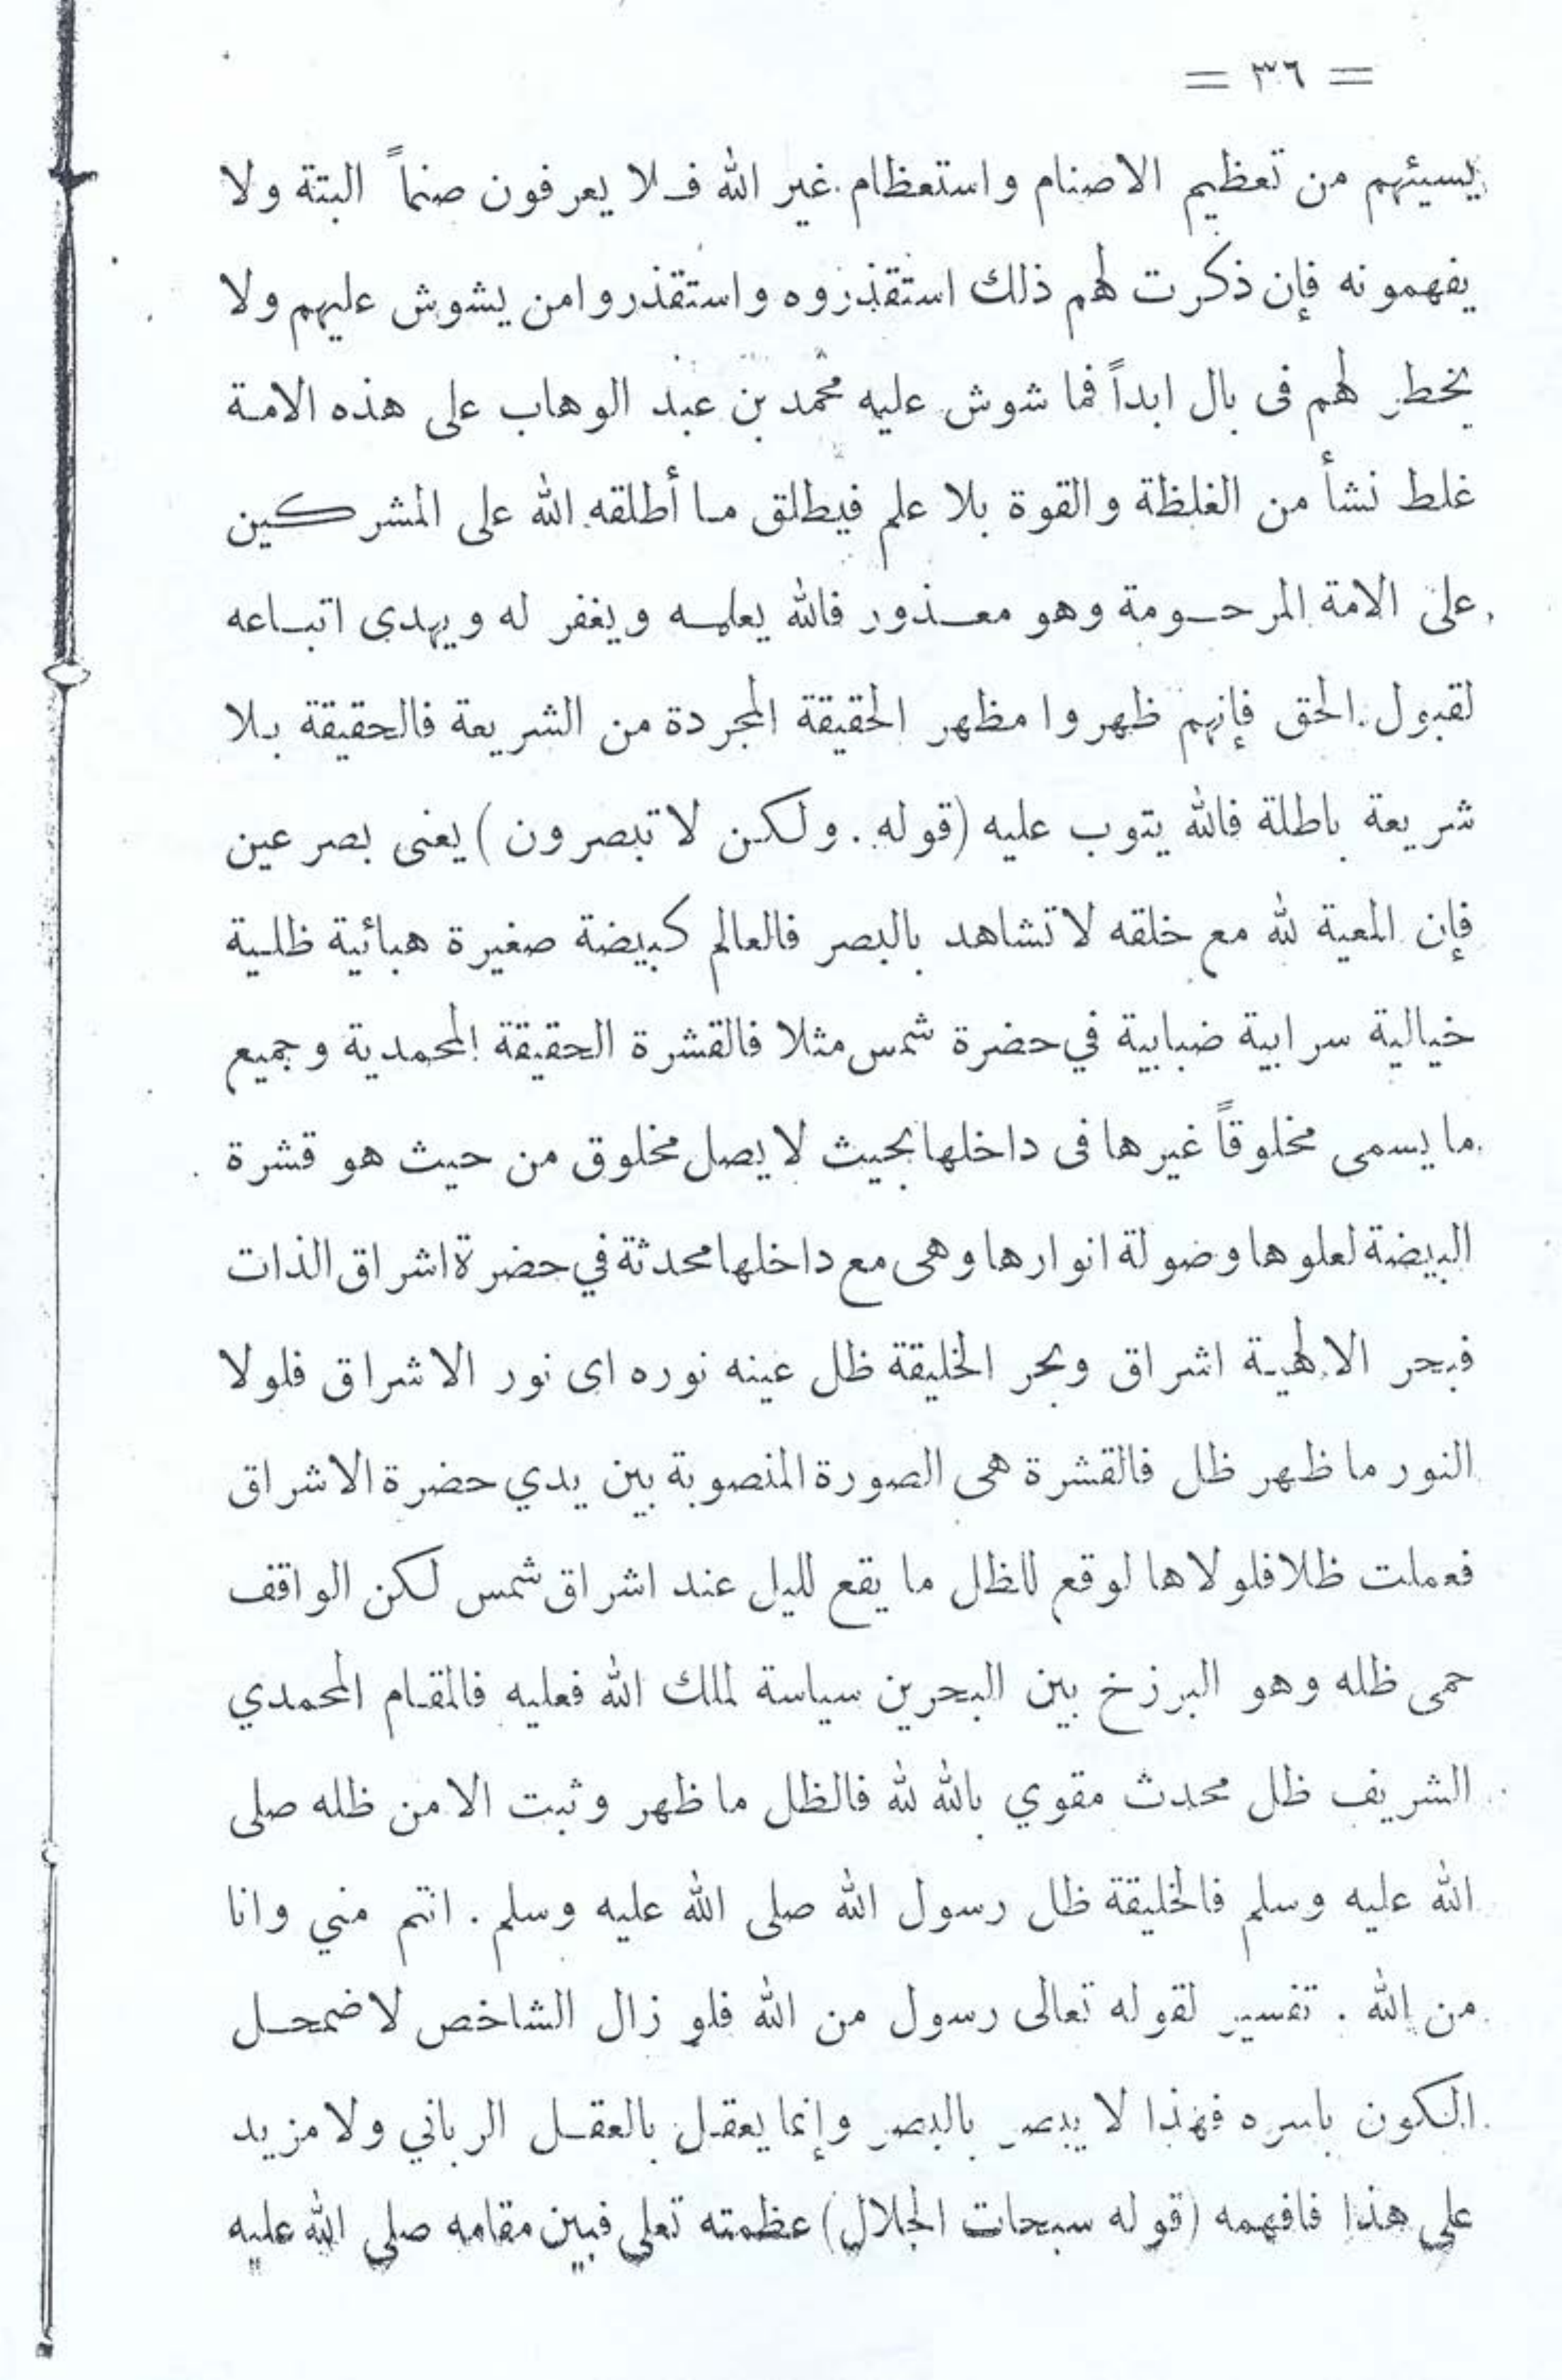 = ٣٦ =
يسيئهم من تعظيم الاصنام واستعظام غير الله فلا يعرفون صنماً البتة ولا
يفهمونه فإن ذكرت لهم ذلك استقذروه واستقذروا من يشوش عليهم ولا
يخطر لهم فى بال ابداً فما شوش عليه محمد بن عبد الوهاب على هذه الامة
غلط نشأ من الغلظة والقوة بلا علم فيطلق ما أطلقه الله على المشركين
على الامة المرحومة وهو معذور فالله يعلمه ويغفر له ويهدى اتباعه
لقبول الحق فإنهم ظهروا مظهر الحقيقة المجردة من الشريعة فالحقيقة بلا
شريعة باطلة فالله يتوب عليه (قوله . ولكن لا تبصرون) يعنى بصر عين
فإن المعية لله مع خلقه لا تشاهد بالبصر فالعالم كبيضة صغيرة هبائية ظلية
خيالية سرابية ضبابية في حضرة شمس مثلا فالقشرة الحقيقة المحمدية وجميع
ما يسمى مخلوقاً غيرها فى داخلها بحيث لا يصل مخلوق من حيث هو قشرة
البيضة لعلوها وضولة انوارها وهى مع داخلها محدثة في حضرة اشراق الذات
فبحر الالهية اشراق وبحر الخليقة ظل عينه نوره اى نور الاشراق فلولا
النور ما ظهر ظل فالقشرة هى الصورة المنصوبة بين يدي حضرة الاشراق
فعملت ظلا فلولاها لوقع للظل ما يقع لليل عند اشراق شمس لكن الواقف
حمى ظله وهو البرزخ بين البحرين سياسة لملك الله فعليه فالمقام المحمدي
الشريف ظل محدث مقوي بالله لله فالظل ما ظهر وثبت الا من ظله صلى
الله عليه وسلم فالخليقة ظل رسول الله صلى الله عليه وسلم . انتم مني وانا
من الله . تفسير لقوله تعالى رسول من الله فلو زال الشاخص لاضمحل
الكون باسره فهذا لا يبصر بالبصر وإنما يعقل بالعقل الرباني ولا مزيد
على هذا فافهمه (قوله سبحات الجلال) عظمته تعلى فبين مقامه صلى الله عليه